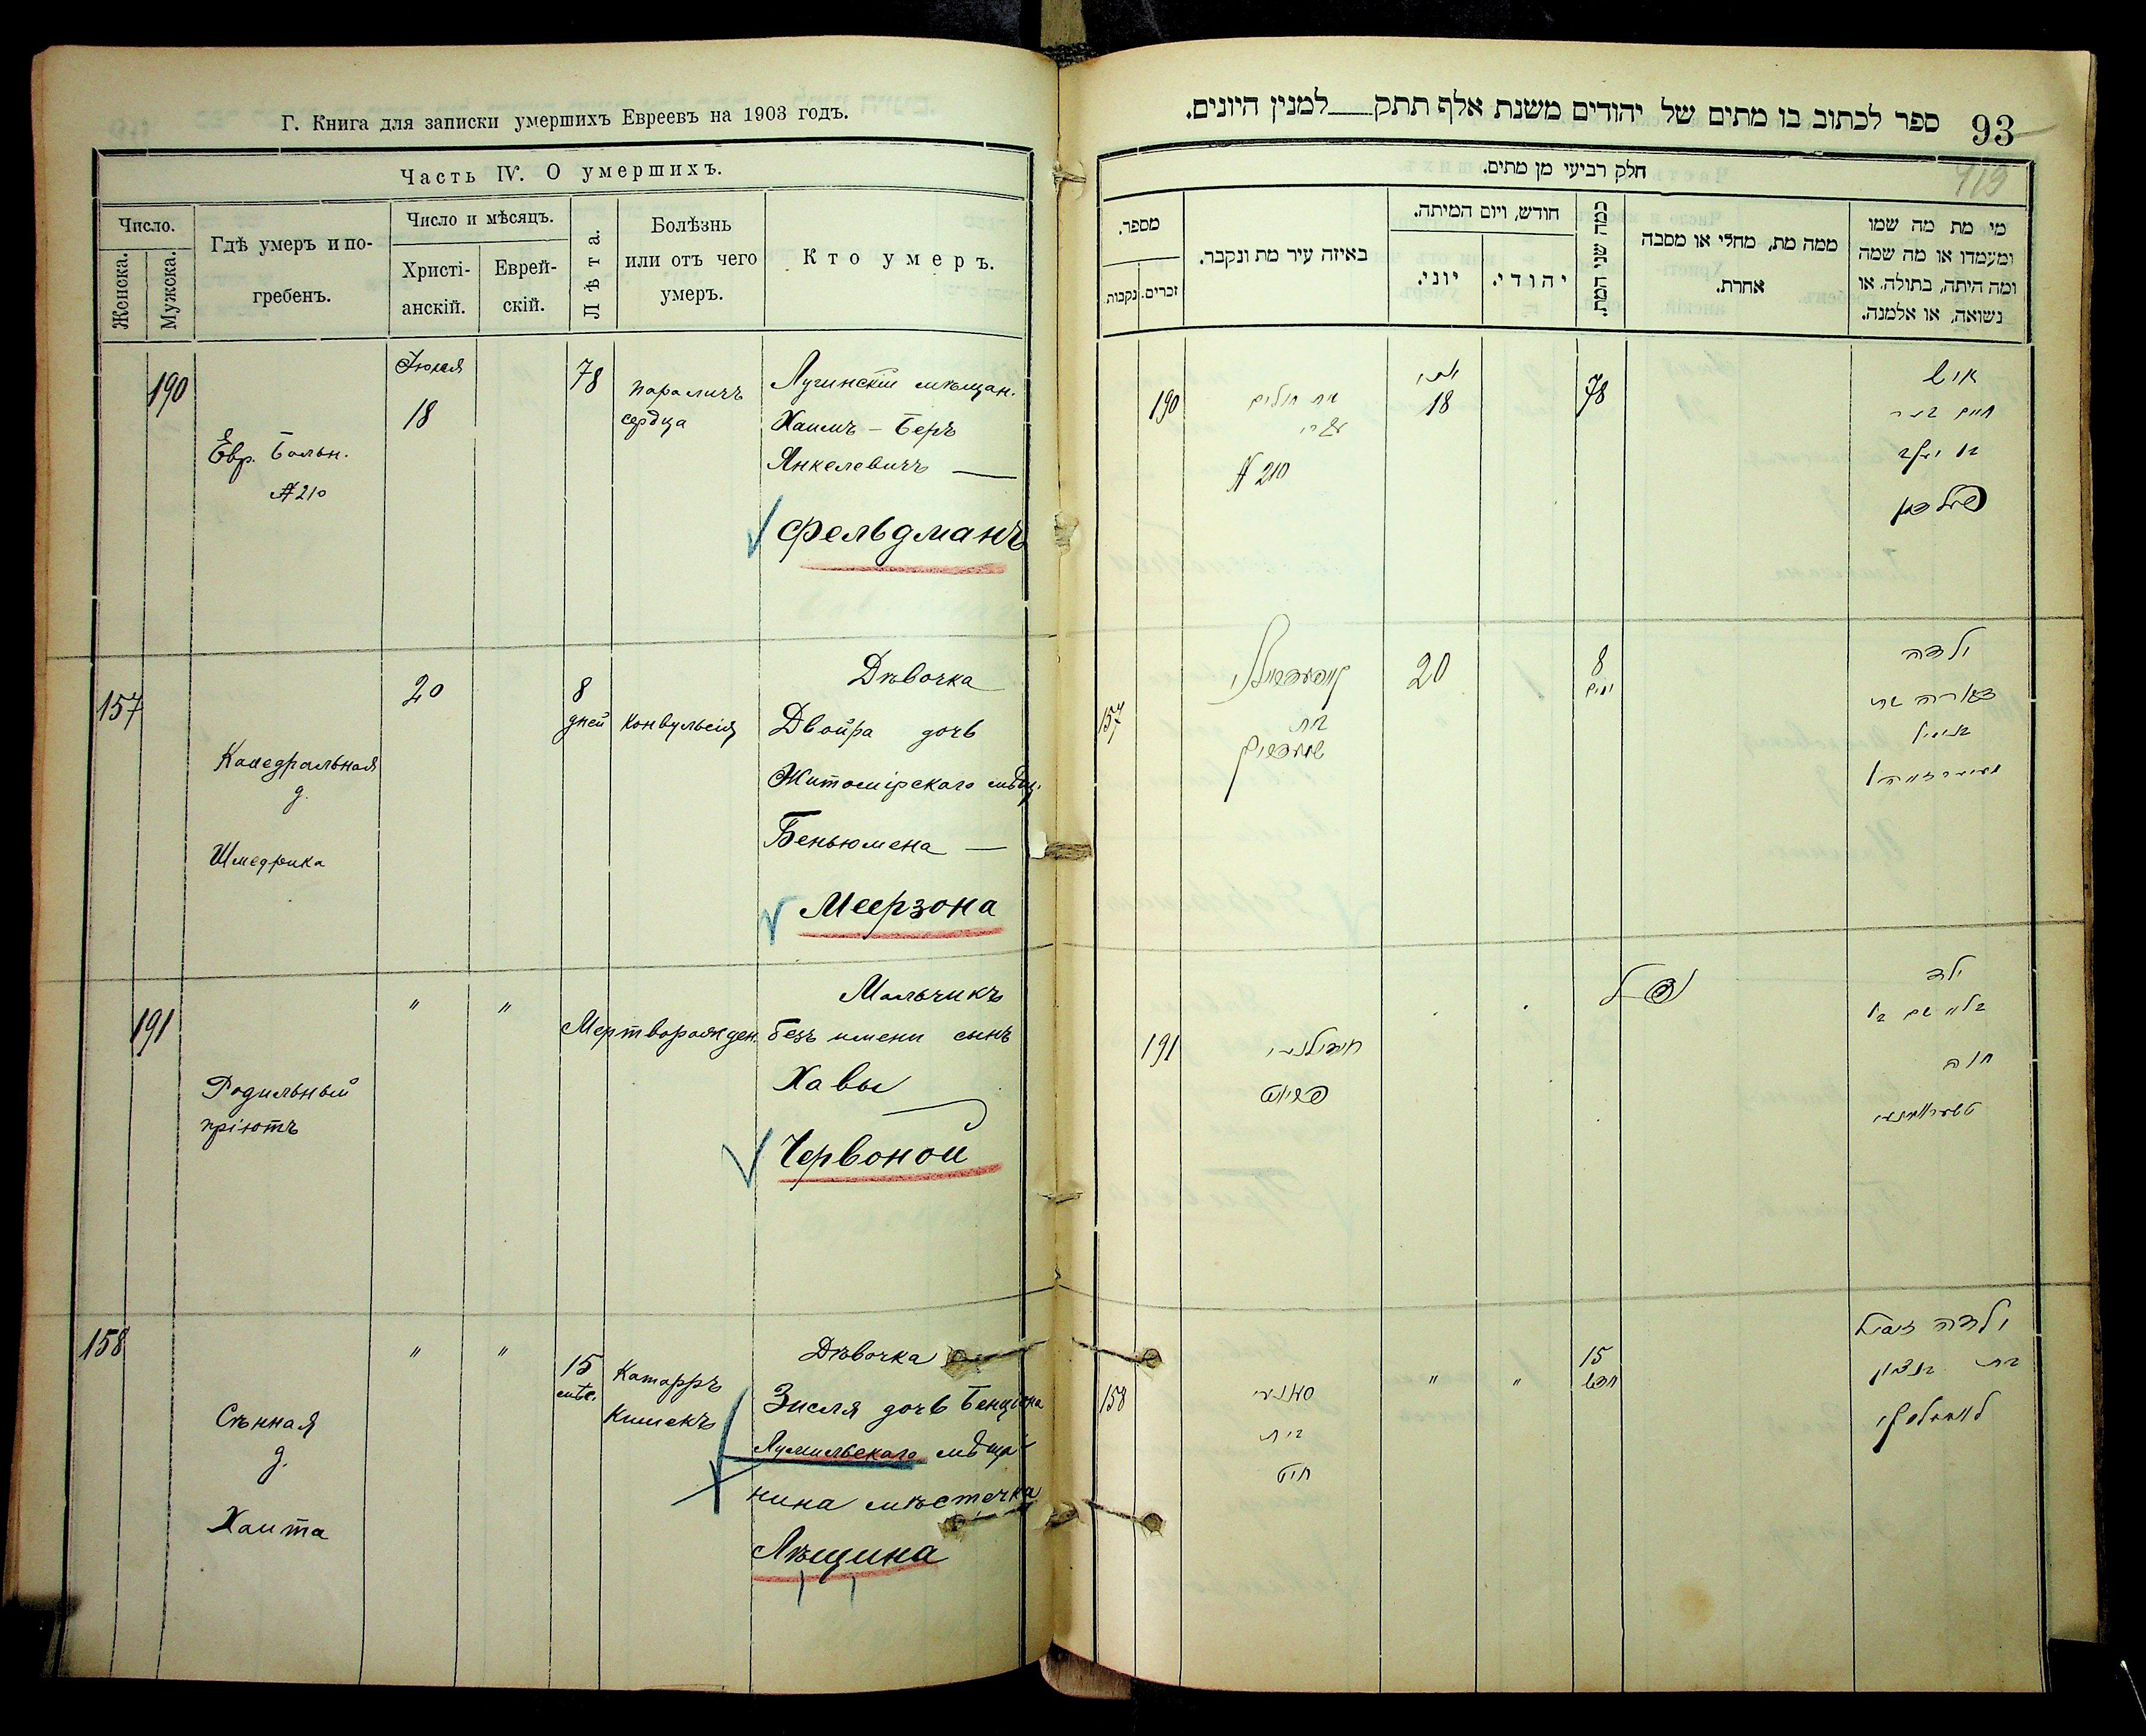 Г. Книга для записки умершихъ Евреевъ на 1903 годъ.
Часть IV. О умершихъ.
Число.
Женска.
Мужска.
Гдѣ умеръ и по-
гребенъ.
Число и мѣсяцъ.
Христі-
анскій.
Еврей-
скій.
Лѣта.
Болѣзнь
или отъ чего
умеръ.
Кто умеръ.
190
Евр. Больн.
№ 210
Іюля
18
78
параличъ
сердца
Лугинскій мѣщан.
Хаимъ - Беръ
Янкелевичъ —
Фельдманъ
157
Каѳедральная
д.
Шмедрика
20
8
дней
Конвульсія
Дѣвочка
Двойра дочь
Житомірскаго мѣщ.
Беньюмена —
Меерзона
191
Родильный
пріютъ
" "
Мертворожден.
Мальчикъ
безъ имени сынъ
Хавы
Червоной
158
Сѣнная
д.
Хаита
" "
15
мѣс.
Катарръ
Кишекъ
Дѣвочка
Зисля дочь Бенціона
мѣща-
нина мѣстечка
Лѣщина
ספר לכתוב בו מתים של יהודים משנת אלף תתק — למנין היונים.
93
חלק רביעי מן מתים.
מספר.
נקבות
זכרים.
באיזה עיר מת ונקבר.
חודש, ויום המיתה.
יוני.
יהודי.
כמה שני המת.
ממה מת, מחלי או מסבה
אחרת.
מי מת מה שמו
ומעמדו או מה שמה
ומה היתה, בתולה, או
נשואה, או אלמנה.
190
בית חולים
№ 210
יולי
18
78
איש
חיים בער
בן יעקב
פעלדמן
157
בית
20
8
ימים
ילדה
דבורה בת
בנימין
191
נפל
ילד
בלי שם בן
חוה
158
בית
חייט
" "
15
חדש
ילדה זיסל
בת בנציון